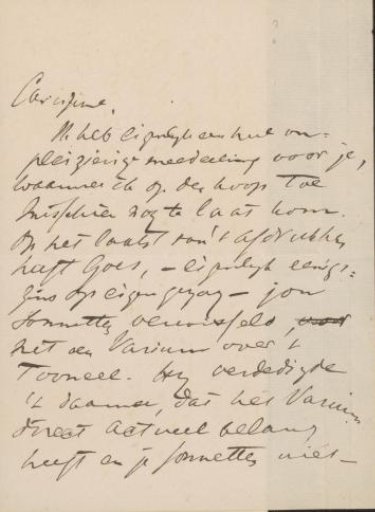 Carissime,
Ik heb eigenlijk een heel on-
pleizierige mededeeling voor je,
waarmee ik op den koop toe
misschien nog te laat kom.
Op het laatst van 't afdrukken
heeft Goes, – eigenlijk eenigs-
zins op eigen gezag – jou
sonnetten verwisseld
met een Varium over 't
Tooneel. Hij verdedigde
't daarmee, dat het Varium
direct actueel belang
heeft en je sonnetten niet –